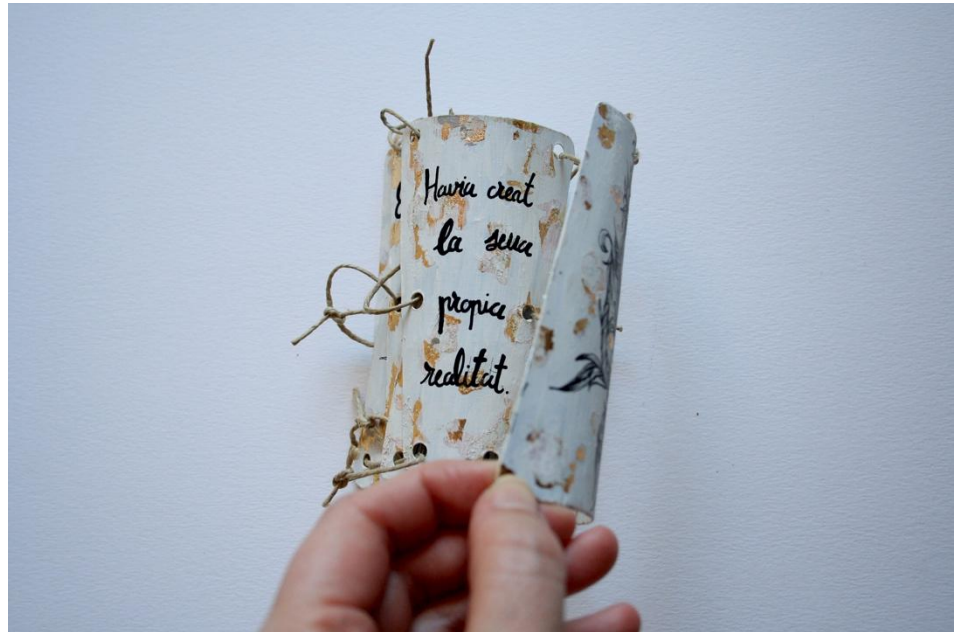 Havia creat
la seua
propia
realitat.